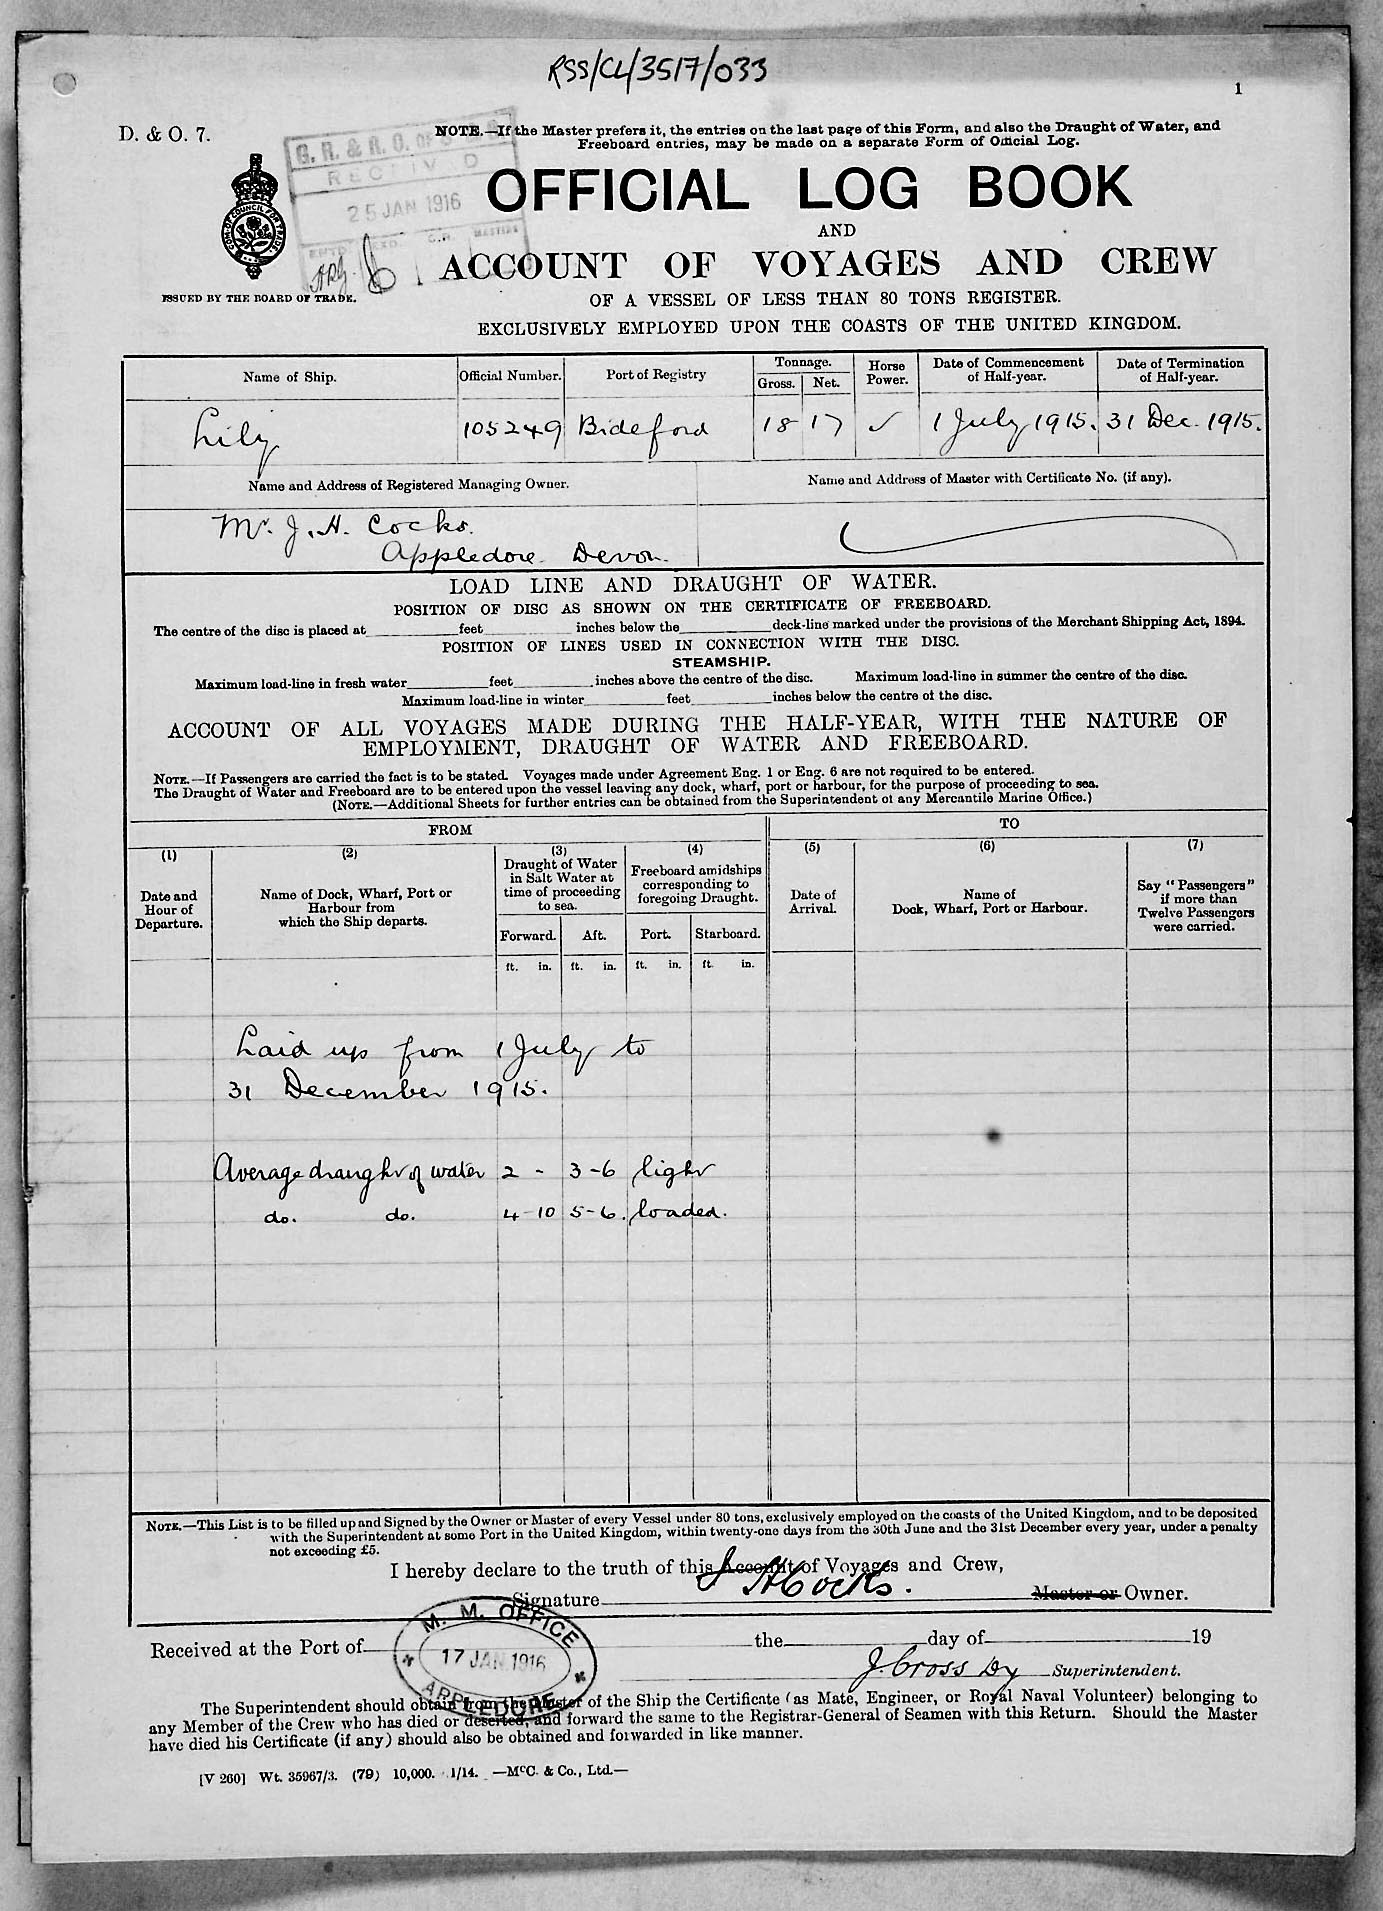 RSS/CL/3517/033
1
D. & O. 7.
NOTE.—If the Master prefers it, the entries on the last page of this Form, and also the Draught of Water, and
Freeboard entries, may be made on a separate Form of Official Log.
G. R. & R. O. OF
25 JAN 1916
OFFICIAL LOG BOOK
AND
ACCOUNT OF VOYAGES AND CREW
ISSUED BY THE BOARD OF TRADE.
OF A VESSEL OF LESS THAN 80 TONS REGISTER.
EXCLUSIVELY EMPLOYED UPON THE COASTS OF THE UNITED KINGDOM.
Name of Ship. Official Number. Port of Registry Tonnage. Gross. Net. Horse Power. Date of Commencement of Half-year. Date of Termination of Half-year.
Lily 105249 Bideford 18 17 1 July 1915. 31 Dec. 1915.
Name and Address of Registered Managing Owner. Name and Address of Master with Certificate No. (if any).
Mr. J. H. Cocks.
Appledore Devon.
LOAD LINE AND DRAUGHT OF WATER.
POSITION OF DISC AS SHOWN ON THE CERTIFICATE OF FREEBOARD.
The centre of the disc is placed at feet inches below the deck-line marked under the provisions of the Merchant Shipping Act, 1894.
POSITION OF LINES USED IN CONNECTION WITH THE DISC.
STEAMSHIP.
Maximum load-line in fresh water feet inches above the centre of the disc. Maximum load-line in summer the centre of the disc.
Maximum load-line in winter feet inches below the centre of the disc.
ACCOUNT OF ALL VOYAGES MADE DURING THE HALF-YEAR, WITH THE NATURE OF
EMPLOYMENT, DRAUGHT OF WATER AND FREEBOARD.
NOTE.—If Passengers are carried the fact is to be stated. Voyages made under Agreement Eng. 1 or Eng. 6 are not required to be entered.
The Draught of Water and Freeboard are to be entered upon the vessel leaving any dock, wharf, port or harbour, for the purpose of proceeding to sea.
(NOTE.—Additional Sheets for further entries can be obtained from the Superintendent of any Mercantile Marine Office.)
FROM TO
(1) (2) (3) (4) (5) (6) (7)
Date and Hour of Departure. Name of Dock, Wharf, Port or Harbour from which the Ship departs. Draught of Water in Salt Water at time of proceeding to sea. Freeboard amidships corresponding to foregoing Draught. Date of Arrival. Name of Dock, Wharf, Port or Harbour. Say "Passengers" if more than Twelve Passengers were carried.
Forward. Aft. Port. Starboard.
ft. in. ft. in. ft. in. ft. in.
Laid up from 1 July to
31 December 1915.
Average draught of water 2 - 3-6 light
do. do. 4-10 5-6. loaded.
NOTE.—This List is to be filled up and Signed by the Owner or Master of every Vessel under 80 tons, exclusively employed on the coasts of the United Kingdom, and to be deposited
with the Superintendent at some Port in the United Kingdom, within twenty-one days from the 30th June and the 31st December every year, under a penalty
not exceeding £5.
I hereby declare to the truth of this Account of Voyages and Crew,
Signature J H Cocks. Master or Owner.
M. M. OFFICE
17 JAN 1916
APPLEDORE
Received at the Port of the day of 19
J. Cross Dy Superintendent.
The Superintendent should obtain from the Master of the Ship the Certificate (as Mate, Engineer, or Royal Naval Volunteer) belonging to
any Member of the Crew who has died or deserted, and forward the same to the Registrar-General of Seamen with this Return. Should the Master
have died his Certificate (if any) should also be obtained and forwarded in like manner.
[V 260] Wt. 35967/3. (79) 10,000. 1/14. —McC. & Co., Ltd.—